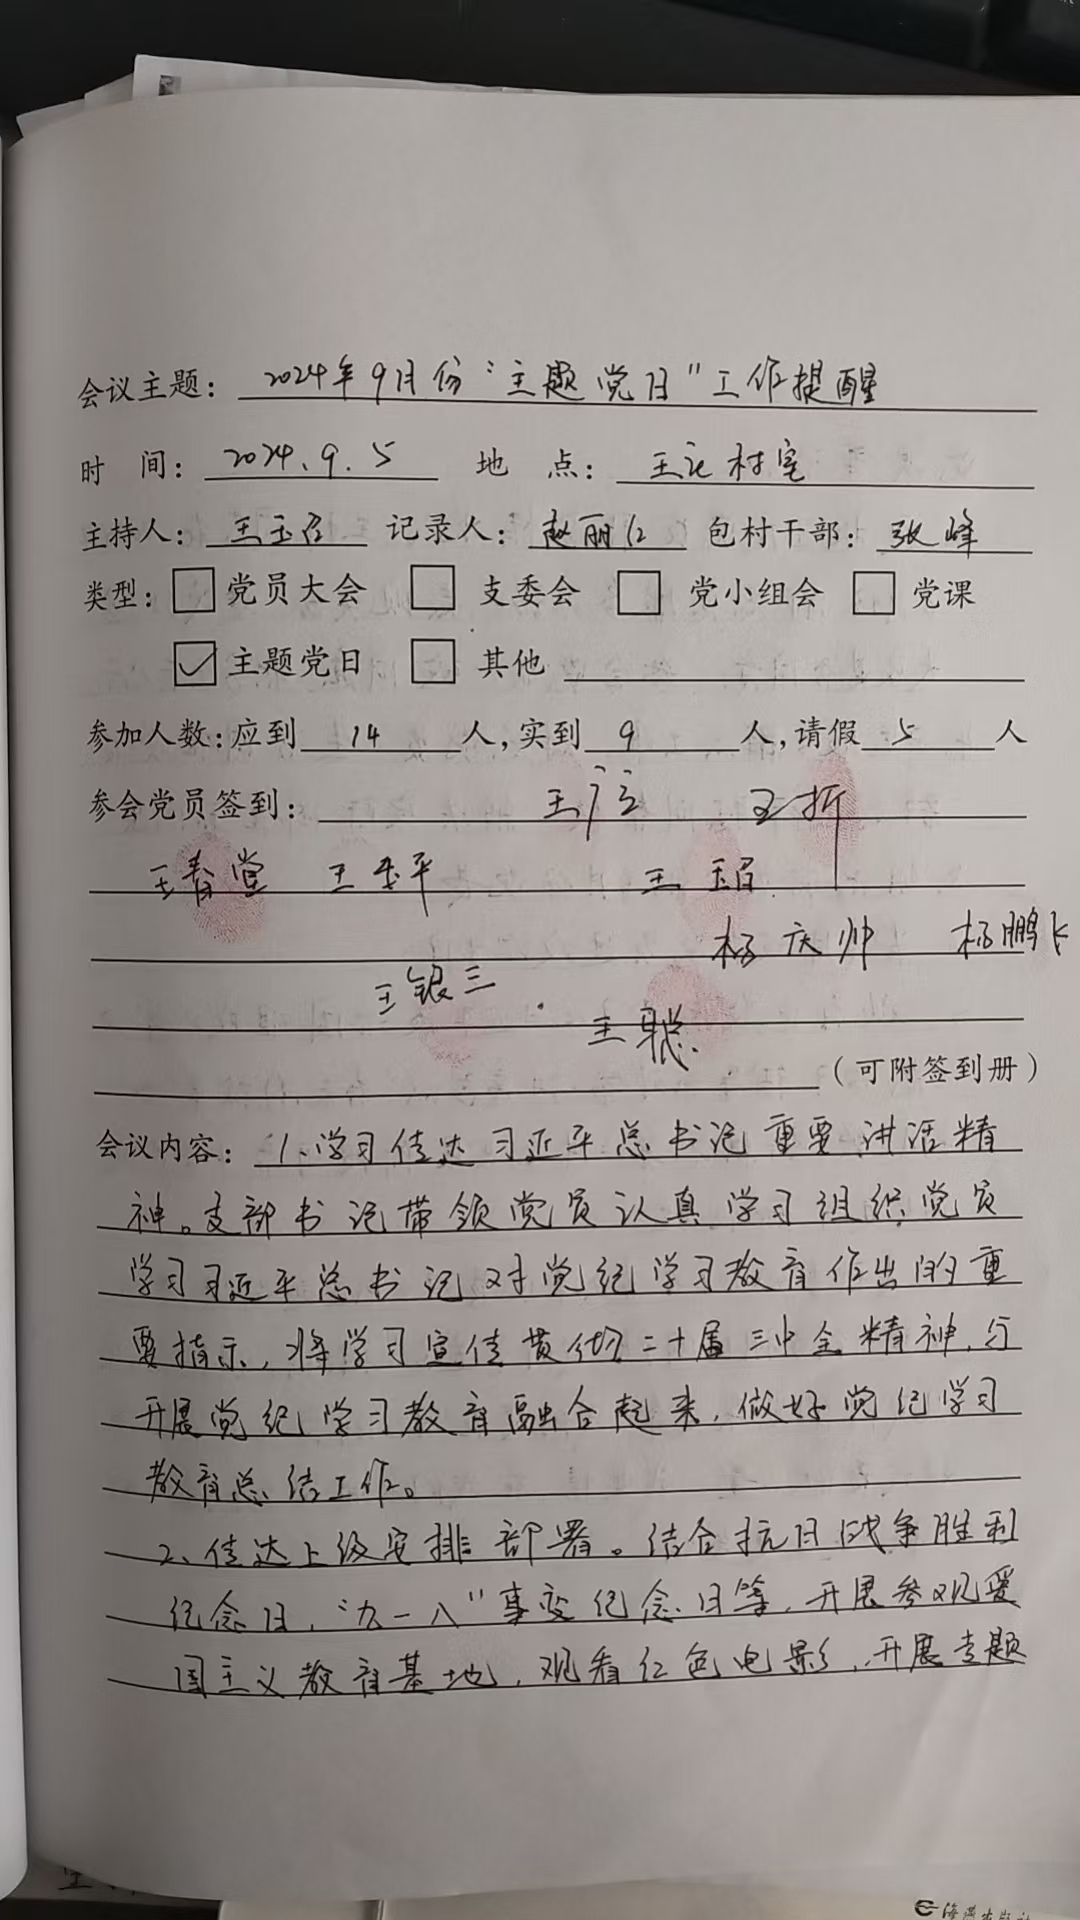 会议主题：2024年9月份“主题党日”工作提醒
时 间：2024.9.5 地 点：王记村室
主持人：王玉召 记录人：赵丽红 包村干部：张峰
类型：□党员大会 □支委会 □党小组会 □党课
☑主题党日 □其他
参加人数：应到14人，实到9人，请假5人
参会党员签到： 王折
王春堂 王平 王玉召
杨庆帅 杨鹏飞
王银三
王聪
（可附签到册）
会议内容：1、学习传达习近平总书记重要讲话精
神。支部书记带领党员认真学习组织党员
学习习近平总书记对党纪学习教育作出的重
要指示，将学习宣传贯彻二十届三中全精神，与
开展党纪学习教育融合起来，做好党纪学习
教育总结工作。
2、传达上级安排部署。结合抗日战争胜利
纪念日，“九一八”事变纪念日等，开展参观爱
国主义教育基地，观看红色电影，开展专题
海燕出版社